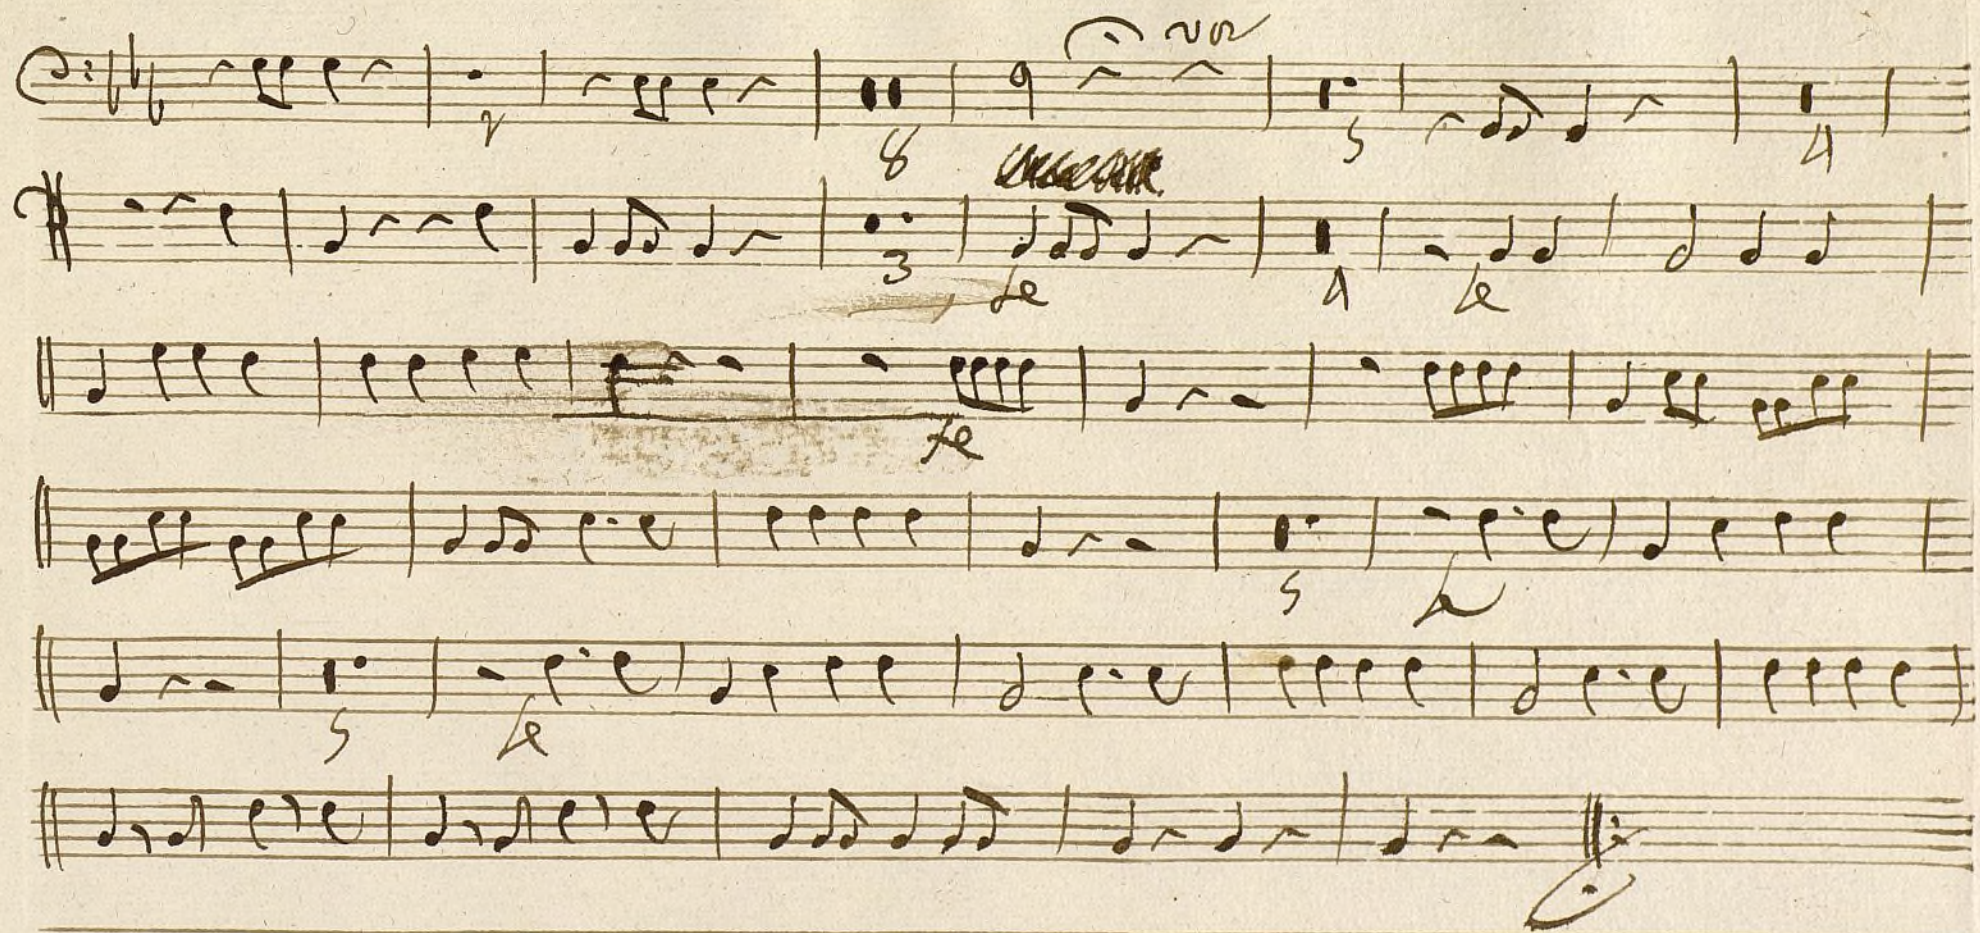 2 8 5 4
3 fe 4 fe
fe
5 fe
5 fe